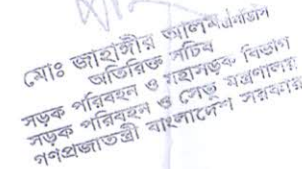 মোঃ জাহাঙ্গীর আলম
অতিরিক্ত সচিব
সড়ক পরিবহন ও মহাসড়ক বিভাগ
সড়ক পরিবহন ও সেতু মন্ত্রণালয়
গণপ্রজাতন্ত্রী বাংলাদেশ সরকার